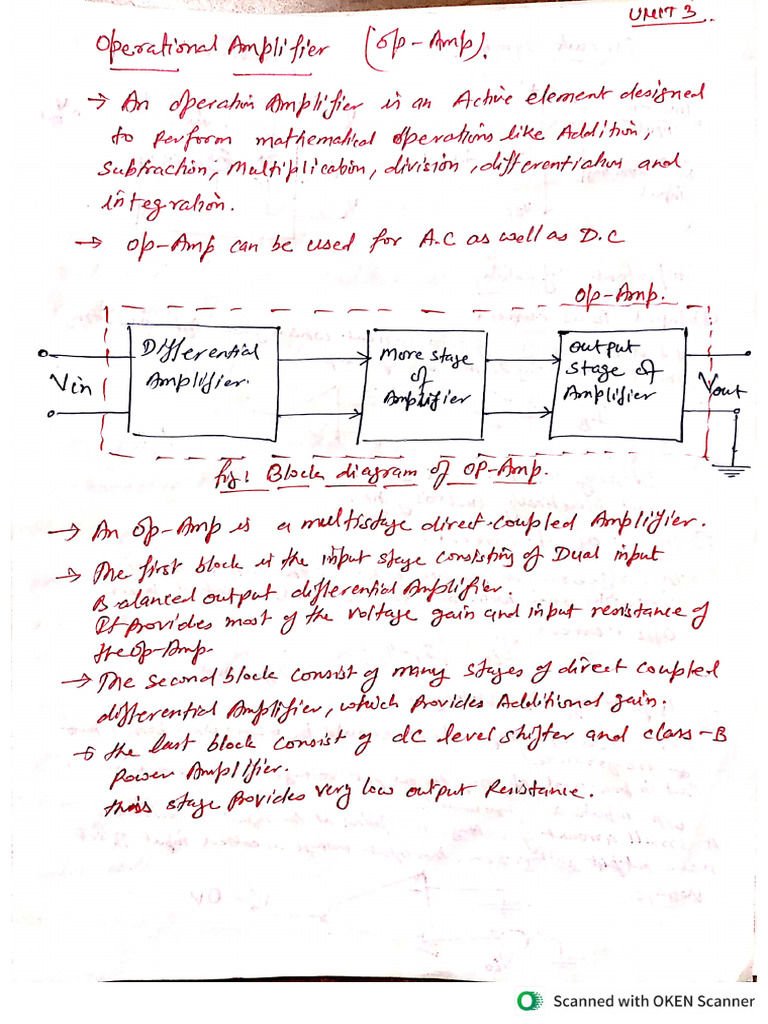 UNIT 3
Operational Amplifier (Op-Amp).
→ An operation Amplifier is an Active element designed
to perform mathematical operations like Addition,
Subtraction, Multiplication, division, differentiation and
integration.
→ Op-Amp can be used for A.C as well as D.C
Op-Amp.
Differential
Amplifier.
More stage
of
Amplifier
Output
Stage of
Amplifier
Vin
Vout
fig: Block diagram of OP-Amp.
→ An Op-Amp is a multistage direct-coupled Amplifier.
→ The first block is the input stage consisting of Dual input
Balanced output differential Amplifier.
It provides most of the voltage gain and input resistance of
the Op-Amp.
→ The second block consist of many stages of direct coupled
differential Amplifier, which Provides Additional gain.
→ the last block consist of dc level shifter and class-B
Power Amplifier.
this stage Provides very low output Resistance.
Scanned with OKEN Scanner